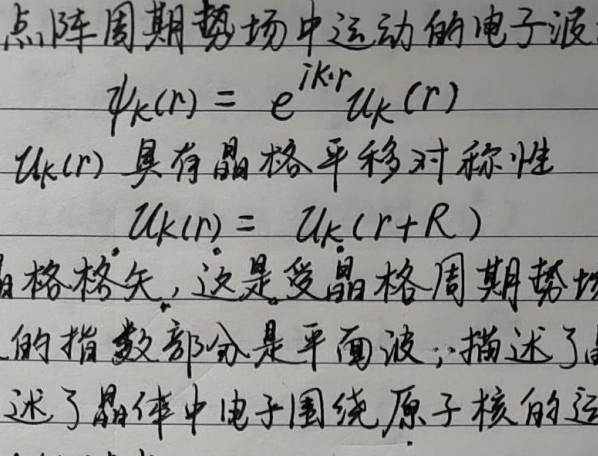 点阵周期势场中运动的电子波
ψₖ(r) = e^{ik·r} uₖ(r)
uₖ(r) 具有晶格平移对称性
uₖ(r) = uₖ(r+R)
格格矢，这是受晶格周期势场
的指数部分是平面波，描述了
述了晶体中电子围绕原子核的运